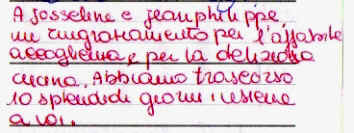 A Josseline e Jeanphilippe
un ringraziamento per l'affabile
accoglienza e per la deliziosa
cucina. Abbiamo trascorso
10 splendidi giorni insieme
a voi.